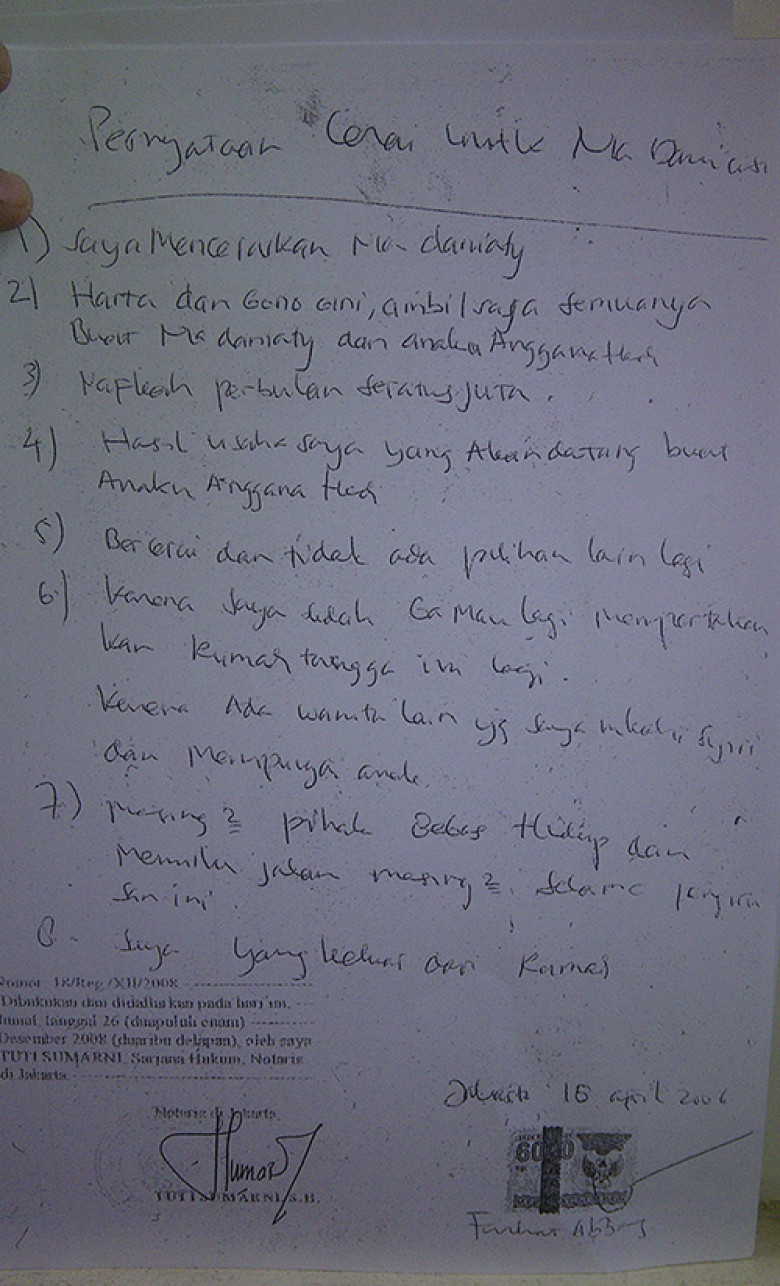 Pernyataan Cerai untuk Nia Daniati
1) Saya Menceraikan Nia daniaty
2) Harta dan Gono Gini, ambil saja semuanya
Buat Nia daniaty dan anaku Anggana Hadi
3) Nafkah perbulan seratus juta.
4) Hasil usaha saya yang Akan datang buat
Anaku Anggana Hadi
5) Bercerai dan tidak ada pilihan lain lagi
6) karena saya sudah Ga Mau lagi mempertahan
kan Rumah tangga ini lagi.
karena Ada wanita lain yg saya nikahi Syiri
dan Mempunyai anak
7) Masing2 pihak Bebas Hidup dan
Memilih jalan masing2. Selama
8. Saya yang keluar dari Rumah
Nomor: 18/Reg./XII/2008
Dibukukan dan didaftarkan pada hari ini,
Jumat, tanggal 26 (duapuluh enam)
Desember 2008 (duaribu delapan), oleh saya
TUTI SUMARNI, Sarjana Hukum, Notaris
di Jakarta.
Notaris di Jakarta,
TUTI SUMARNI, S.H.
Jakarta 16 april 2006
6000
Farhat Abbas